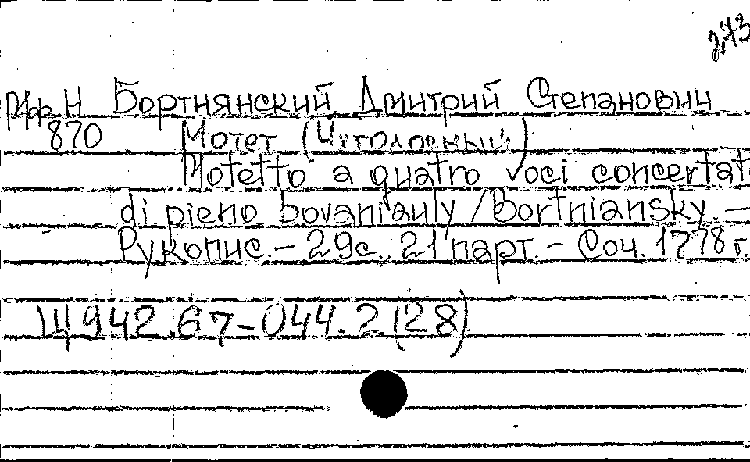 2,73
Шф. Н Бортнянский Дмитрий Степанович
870 Мотет (Чтголосный)
Motetto a quatro voci concertat
di pieno bovaniauly / Bortniansky. —
Рукопис. – 29с., 21 парт. – Соч. 1778 г.
Щ 942.67-044.2(28)